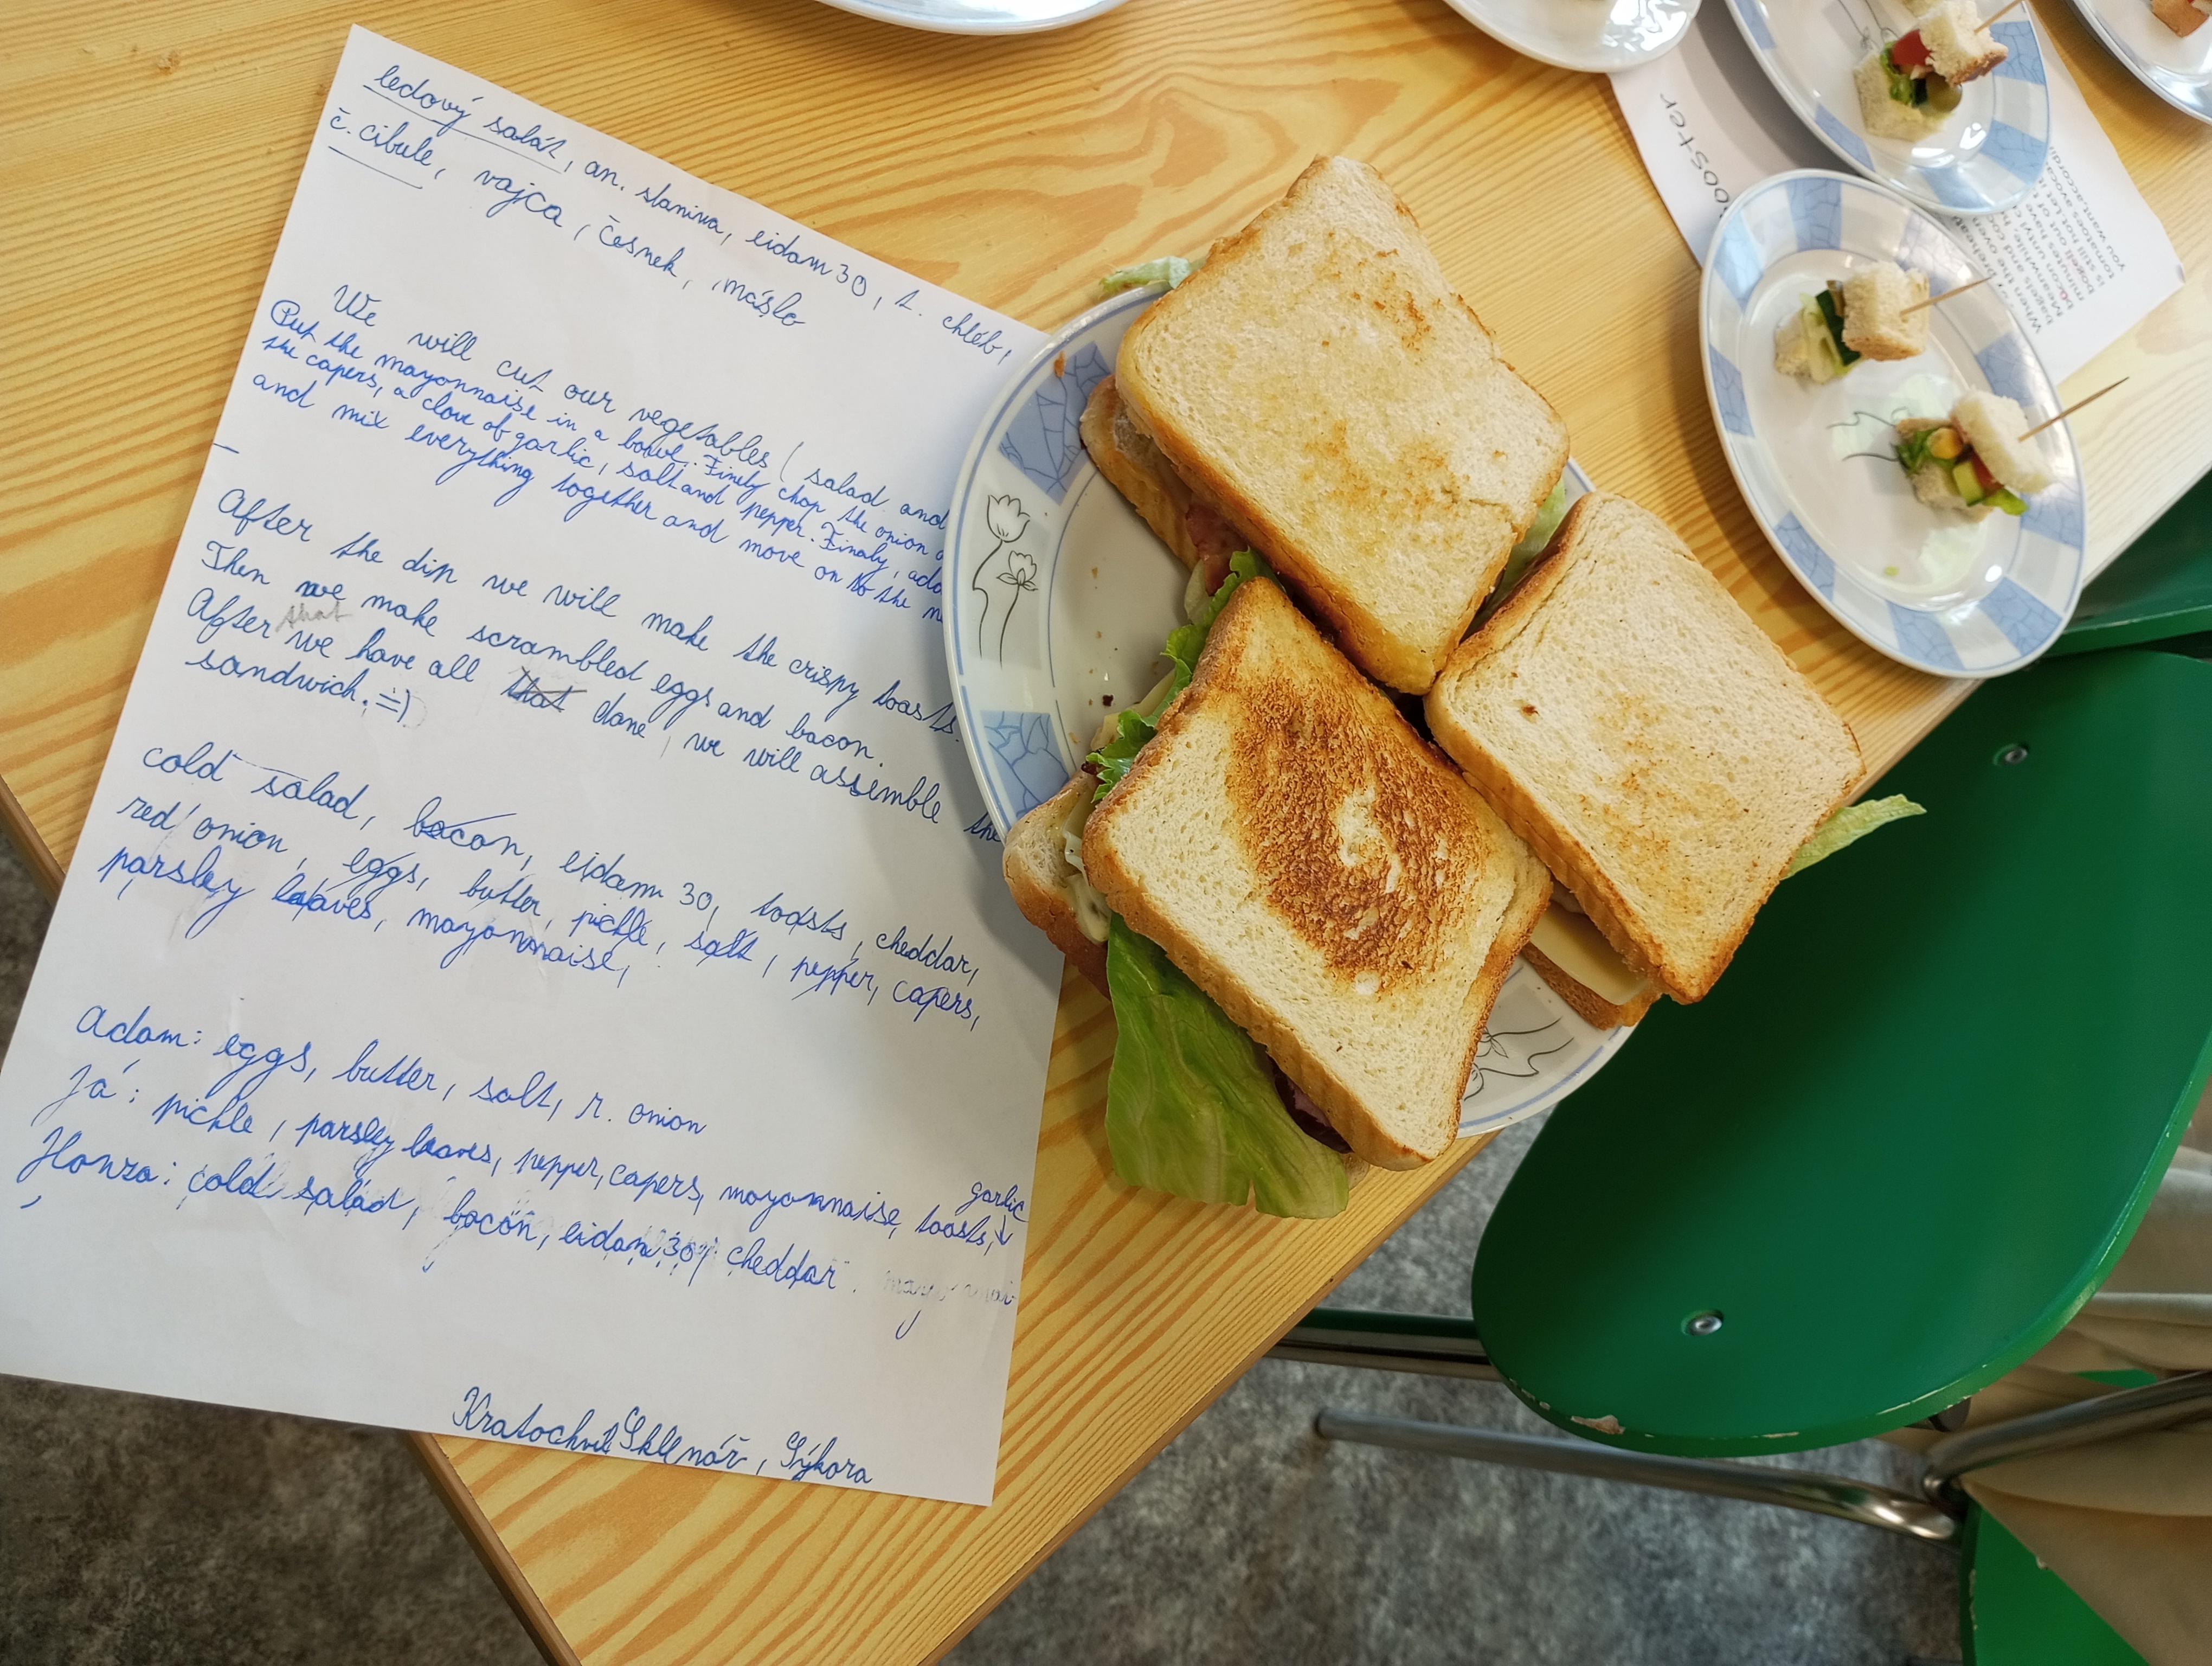 ledový salát, an. slanina, eidam 30, t. chléb,
č. cibule, vajca, česnek, máslo
We will cut our vegetables ( salad and
Put the mayonnaise in a bowl. Finely chop the onion
the capers, a clove of garlic, salt and pepper. Finaly, add
and mix everything together and move on to the
After the dip we will make the crispy toasts.
Then we make scrambled eggs and bacon.
that
After we have all that done, we will assemble the
sandwich. =)
cold salad, bacon, eidam 30, toasts, cheddar,
red onion, eggs, butter, pickle, salt, pepper, capers,
parsley leaves, mayonnaise,
Adam: eggs, butter, salt, r. onion
garlic
Já: pickle, parsley leaves, pepper, capers, mayonnaise, toasts,
Honza: cold salad, bacon, eidam 30, cheddar.
Kratochvíl Sklenář, Sýkora